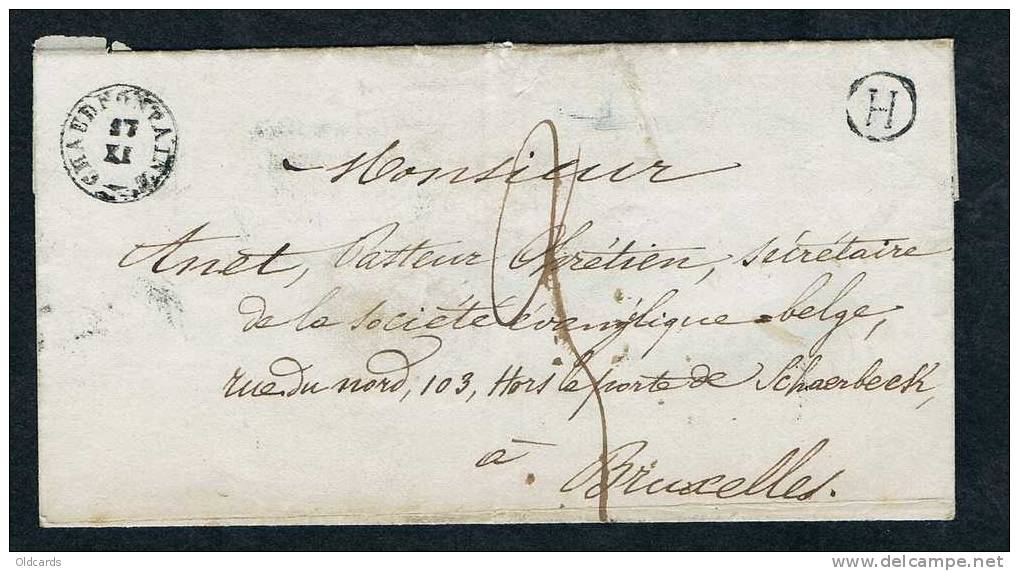 CHAUDFONTAINE
17
XI
H
Monsieur
Anet, Pasteur Chrétien, sécrétaire
de la société évangélique belge,
rue du nord, 103, Hors la porte de Schaerbeek,
à
Bruxelles.
Oldcards
www.delcampe.net